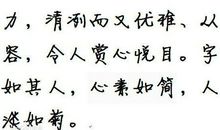 力，清冽而又优雅、从
容，令人赏心悦目。字
如其人，心素如简，人
淡如菊。